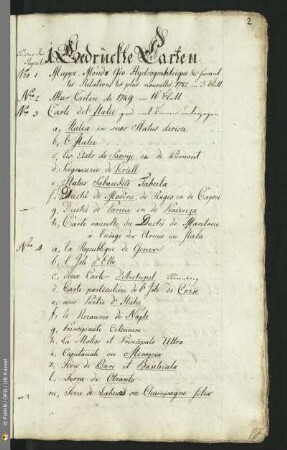 2
Gedruckte Carten
No 1 Mappe-Monde Geo-Hydrographique suivant
les Relations les plus nouvelles 1785. 3 blatt
No 2 Mar Carten de 1749 10 blatt
No 3 Carte del Italie
a, Italia in suos Status divisa
b, l'Italie
c, les Etats de Savoye et de Piemont
d, Seigneurie de Vercelli
e, Status Sabaudici Tabula
f, Duché de Modene, de Regio et de Carpi
g, Duché de Parme et de Plaisance
h, Carte nouvelle du Duché de Mantoue
à l'usage des Armées en Italie
No 4 a, la Republique de Genes
b, l'Isle d'Elbe
c, deux Carte d'Archipel
d, Carte particuliere de l'Isle de Corse
e, une Partie d'Italie
f, le Royaume de Naple
g, Principauté Citerieure
h, la Molise et Principato Ultra
i, Capitanata
k, Terre de Bari et Basilicata
l, Terre de Otranto
m, Terre de Labour ou Champagne felice